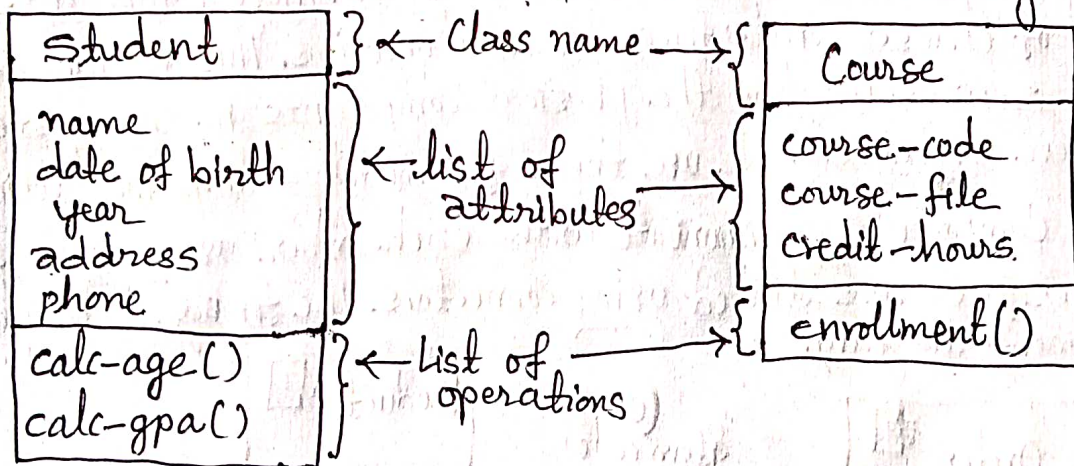 Student
name
date of birth
year
address
phone
calc-age()
calc-gpa()
Class name
list of
attributes
List of
operations
Course
course-code
course-file
credit-hours.
enrollment()